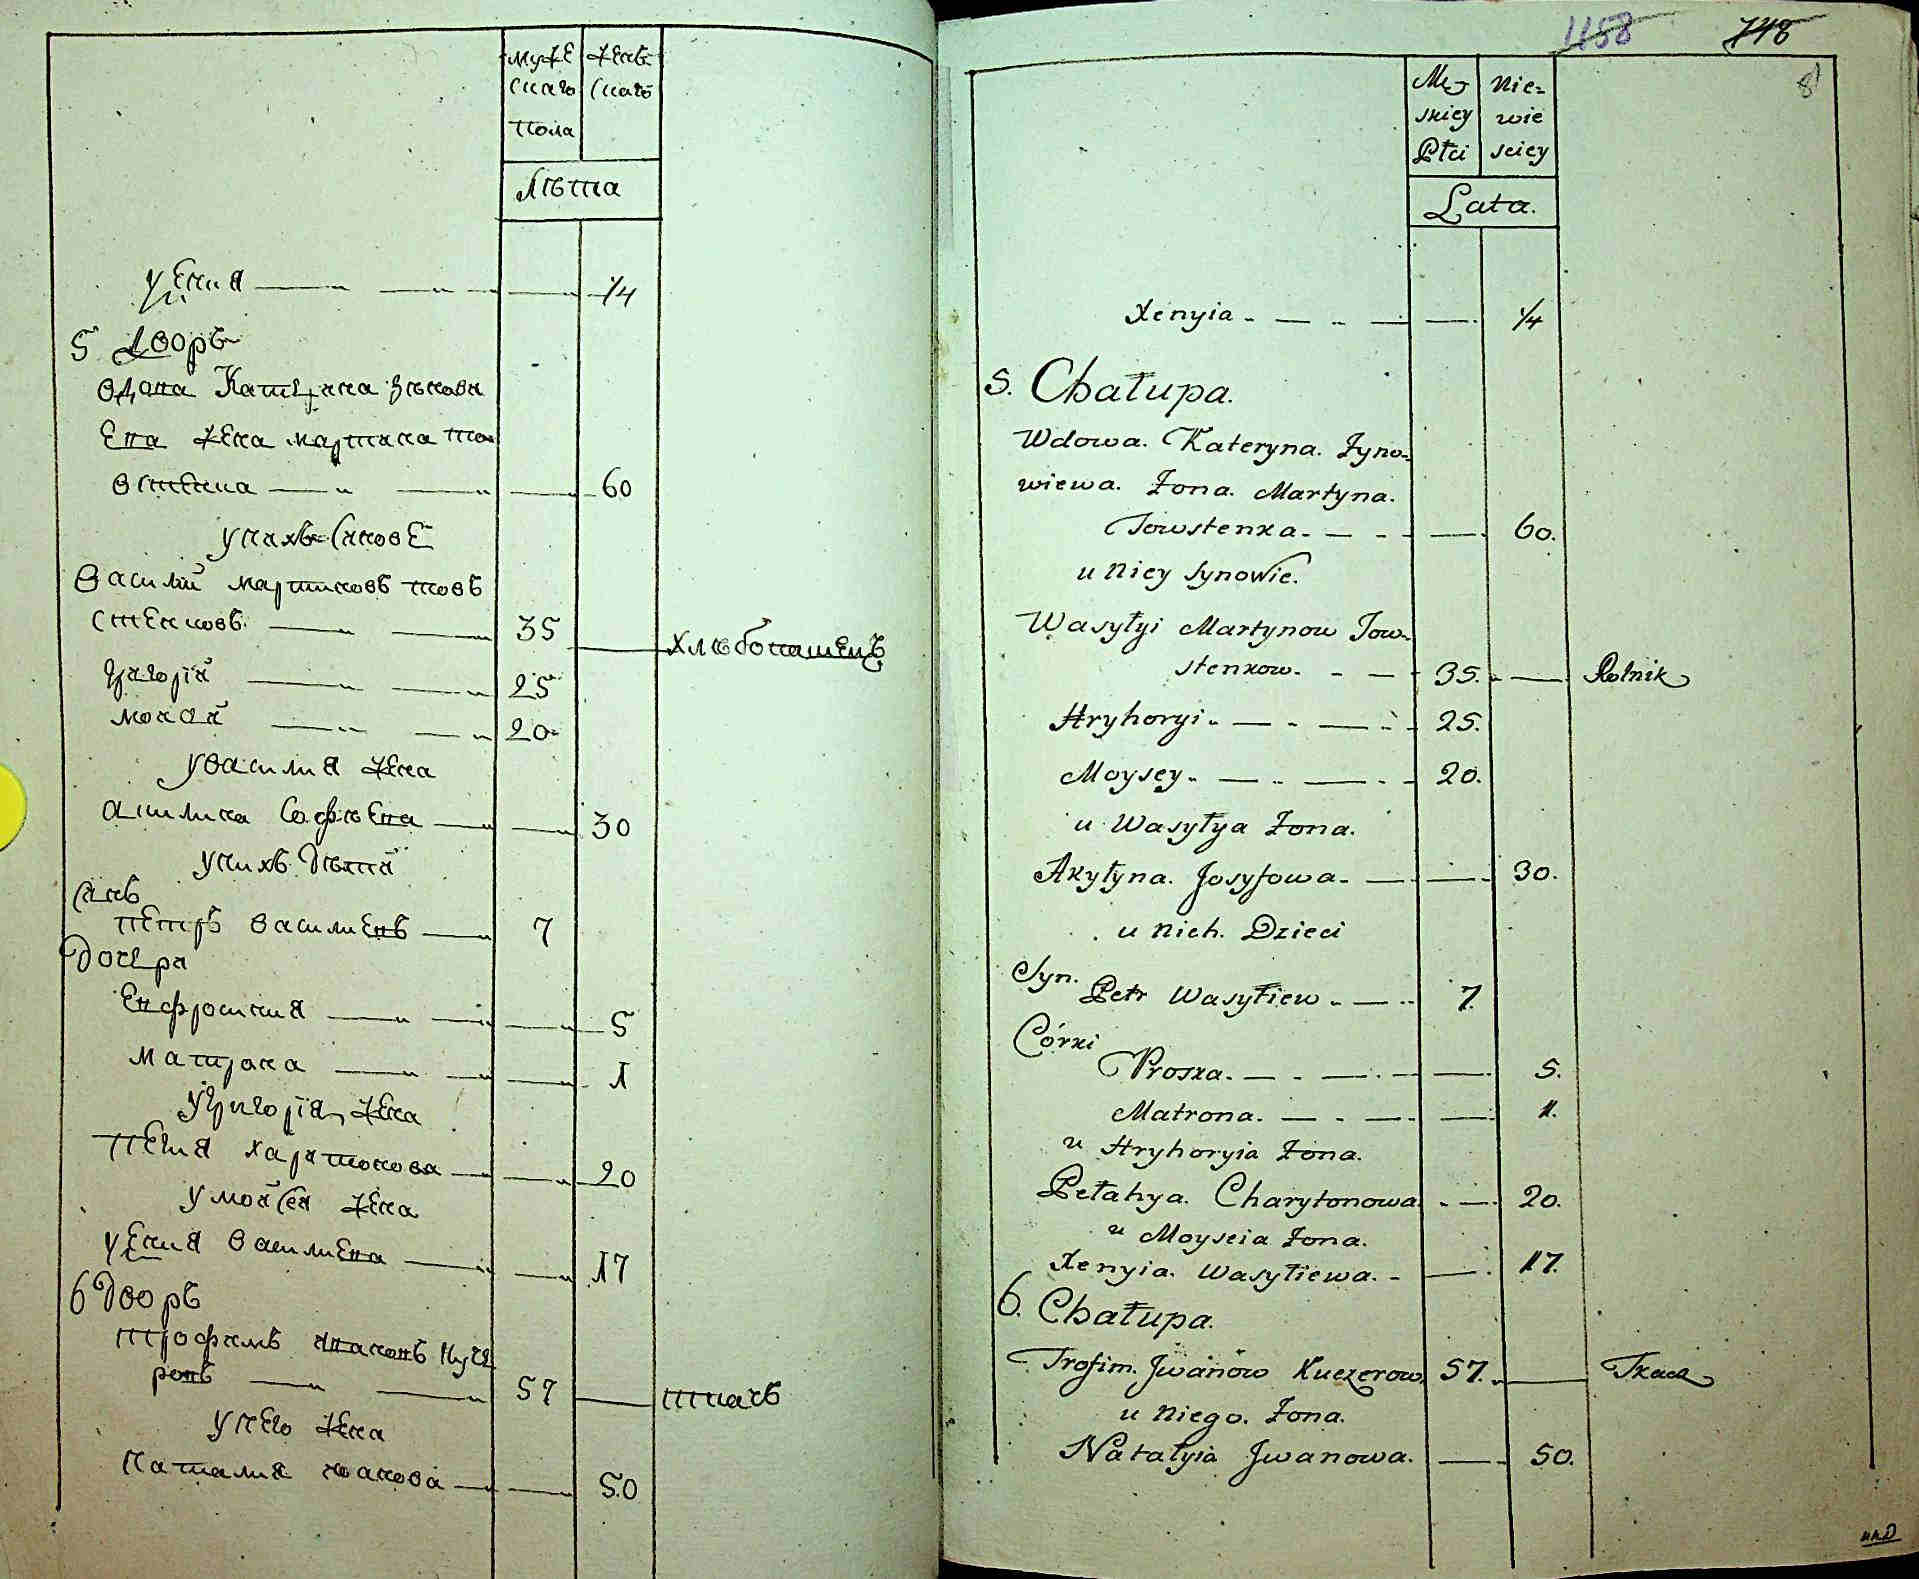 муже
скаго
пола
женъ
скагъ
лѣта
уксения 1/4
5 дворъ
вдова Катерина Зѣнова
ева жена мартина то
встенка 60
у нихъ синове
василий мартиновъ товъ
стенковъ 35 хлѣбопашецъ
григорій 25
мойсей 20
у василия жена
акилина еосифова 30
у нихъ дѣти
синъ
петръ василиевъ 7
дочера
евфросиния 5
матрона 1
у григория жена
пелагия харитонова 20
у мойсея жена
ксения василиева 17
6 дворъ
трофимъ ивановъ куче
ровъ 57 ткачъ
у него жена
наталия иванова 50
1158 748
8
Męz
skiey
Płci
Nie=
wie
sciey
Lata.
Xenyia 1/4
5. Chałupa.
Wdowa. Kateryna. Zyno=
wiewa. Żona. Martyna.
Towstenka. 60.
u Niey Synowie.
Wasyłyi Martynow Tow=
stenkow. 35. Rolnik
Hryhoryi. 25.
Moysey. 20.
u Wasyłya Żona.
Akyłyna. Josyfowa. 30.
u Nich. Dzieci
Syn.
Petr Wasyłiew. 7.
Córki
Proska. 5.
Matrona. 1.
u Hryhoryia Żona.
Pełahya. Charytonowa 20.
u Moyseia Żona.
Xenyia. Wasyłiewa. 17.
6. Chałupa.
Trofim. Jwanow Kuczerow. 57. Tkacz
u Niego. Żona.
Natałyia Jwanowa. 50.